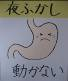 夜ふかし
動かない